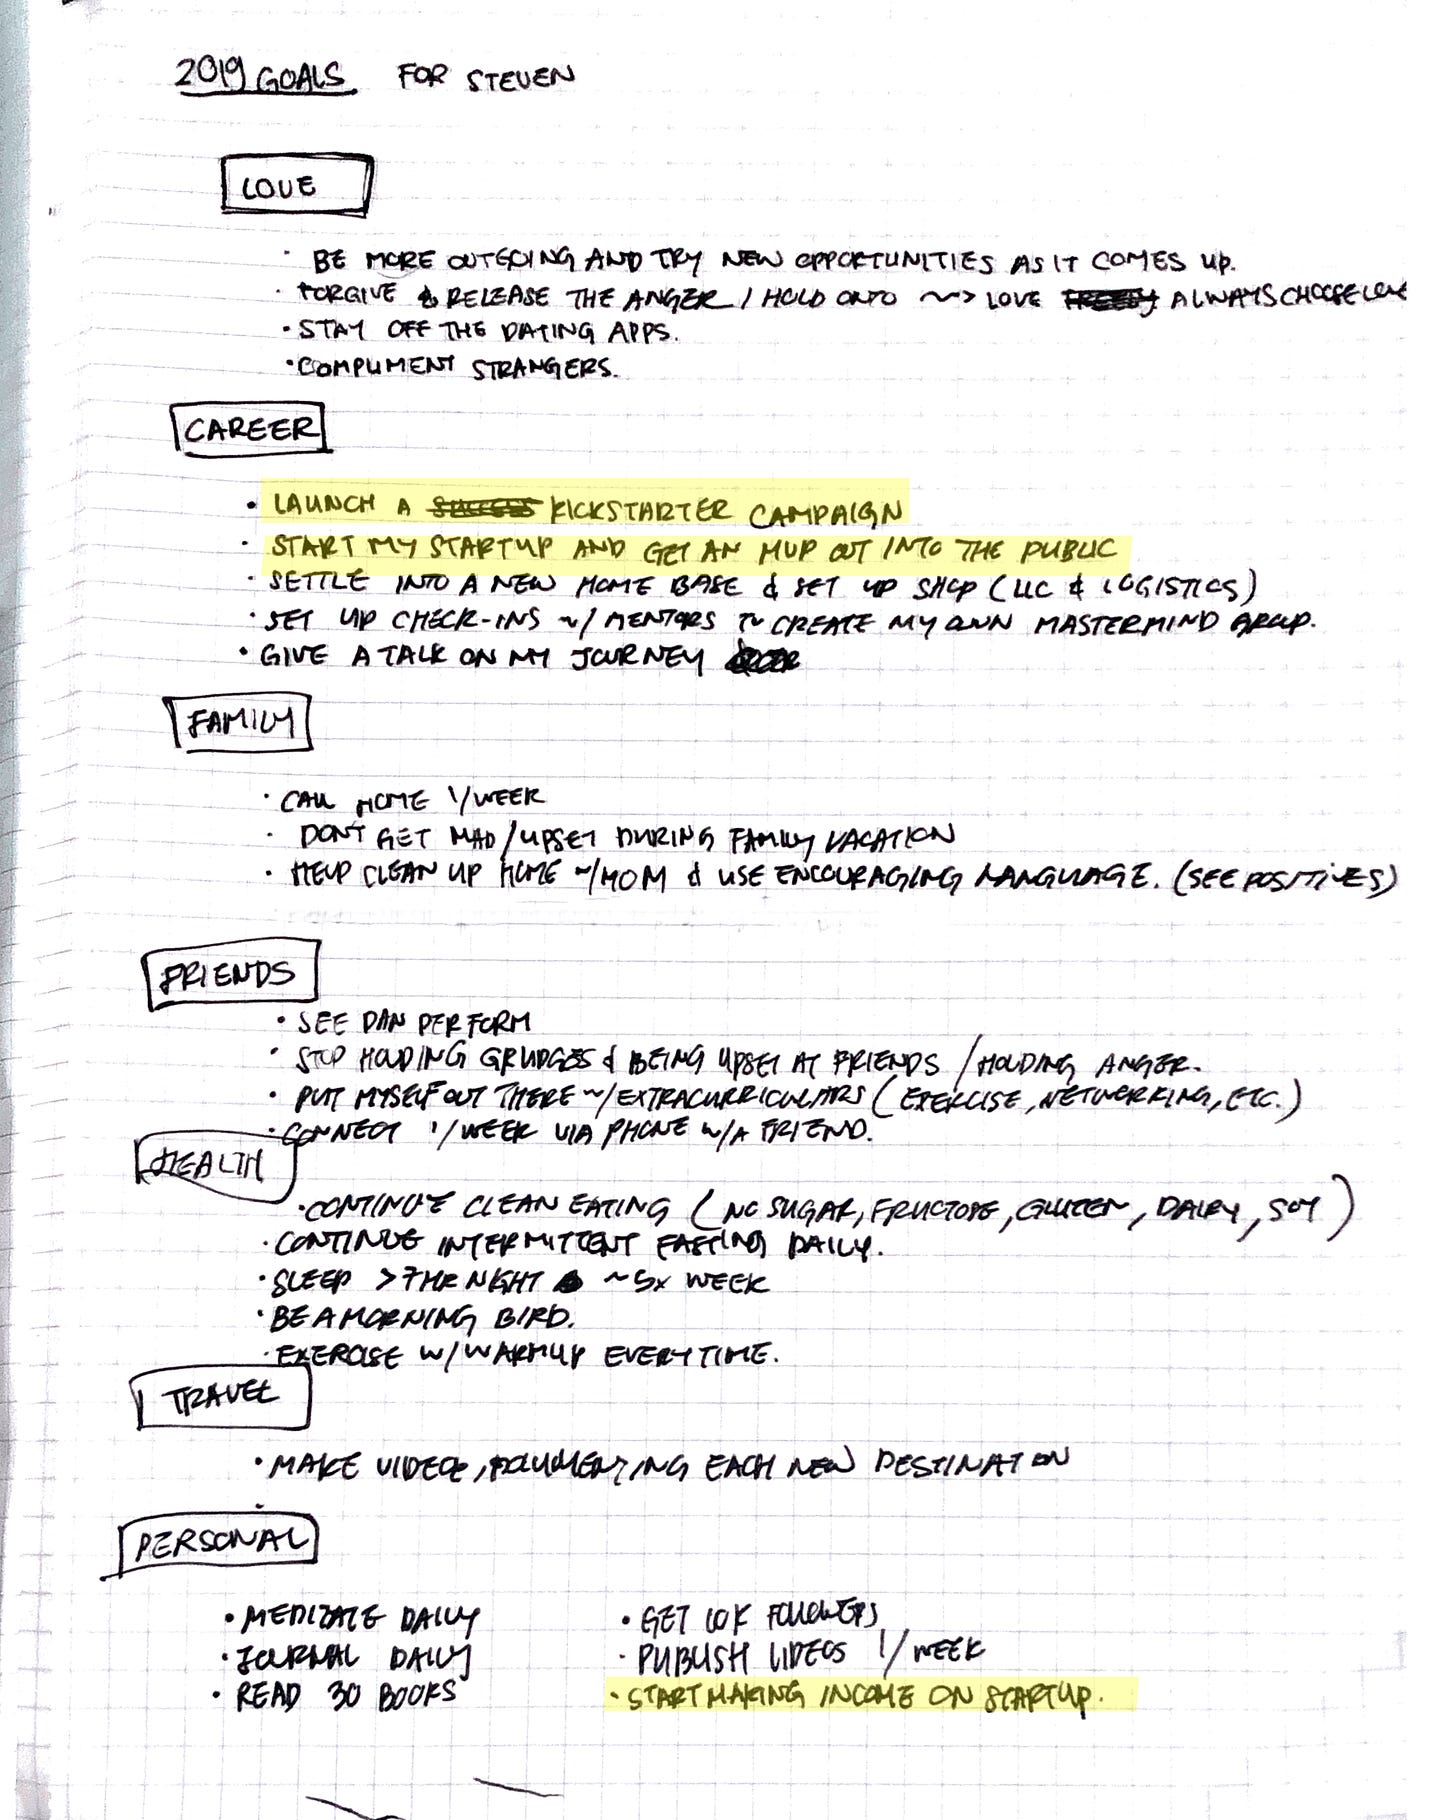 2019 GOALS FOR STEVEN
LOVE
· BE MORE OUTGOING AND TRY NEW OPPORTUNITIES AS IT COMES UP.
· FORGIVE & RELEASE THE ANGER I HOLD ONTO ~~> LOVE ALWAYS CHOOSE LOVE
· STAY OFF THE DATING APPS.
· COMPLIMENT STRANGERS.
CAREER
· LAUNCH A SUCCESS KICKSTARTER CAMPAIGN
· START MY STARTUP AND GET AN MVP OUT INTO THE PUBLIC
· SETTLE INTO A NEW HOME BASE & SET UP SHOP (LLC & LOGISTICS)
· SET UP CHECK-INS w/ MENTORS CREATE MY OWN MASTERMIND GROUP.
· GIVE A TALK ON MY JOURNEY
FAMILY
· CALL HOME 1/WEEK
· DON'T GET MAD/UPSET DURING FAMILY VACATION
· HELP CLEAN UP HOME w/MOM & USE ENCOURAGING LANGUAGE. (SEE POSITIVES)
FRIENDS
· SEE DAN PERFORM
· STOP HOLDING GRUDGES & BEING UPSET AT FRIENDS / HOLDING ANGER.
· PUT MYSELF OUT THERE w/EXTRACURRICULARS (EXERCISE, NETWORKING, ETC.)
· CONNECT 1/WEEK VIA PHONE W/A FRIEND.
HEALTH
· CONTINUE CLEAN EATING (NO SUGAR, FRUCTOSE, GLUTEN, DAIRY, SOY)
· CONTINUE INTERMITTENT FASTING DAILY.
· SLEEP >7HR NIGHT ~5x WEEK
· BE A MORNING BIRD.
· EXERCISE W/WARMUP EVERYTIME.
TRAVEL
· MAKE VIDEOS, DOCUMENTING EACH NEW DESTINATION
PERSONAL
· MEDITATE DAILY
· JOURNAL DAILY
· READ 30 BOOKS
· GET 10K FOLLOWERS
· PUBLISH VIDEOS 1/WEEK
· START MAKING INCOME ON STARTUP.